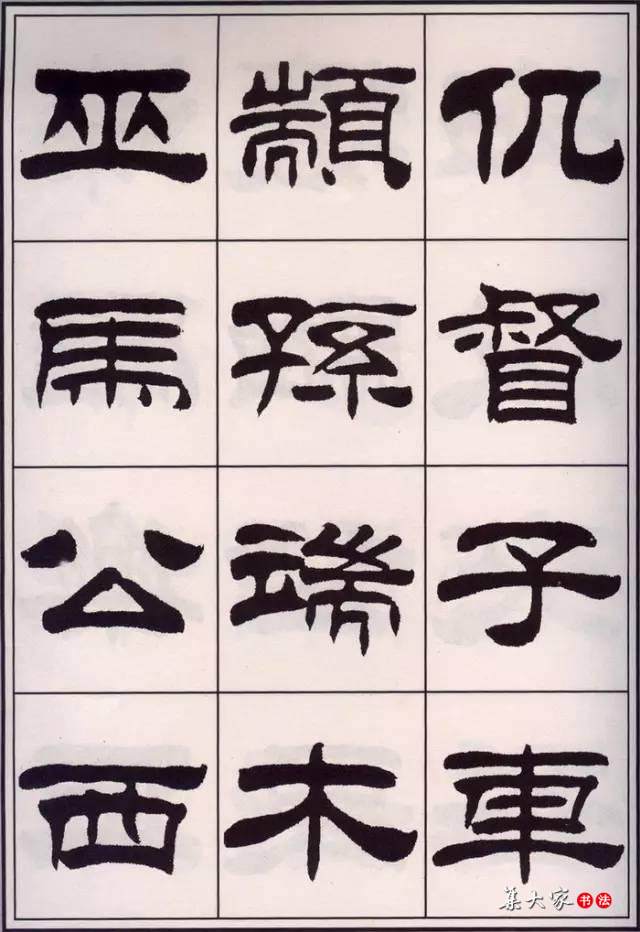 仉督子車
顓孫端木
巫馬公西
集大家书法